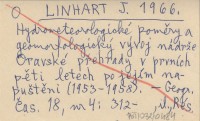 O LINHART J. 1966.
Hydrometeorologické poměry a
geomorfologický vývoj nádrže
Oravské přehrady v prvních
pěti letech po jejím na-
puštění (1953-1958). — Geogr.
Čas. 18, nr 4: 312-